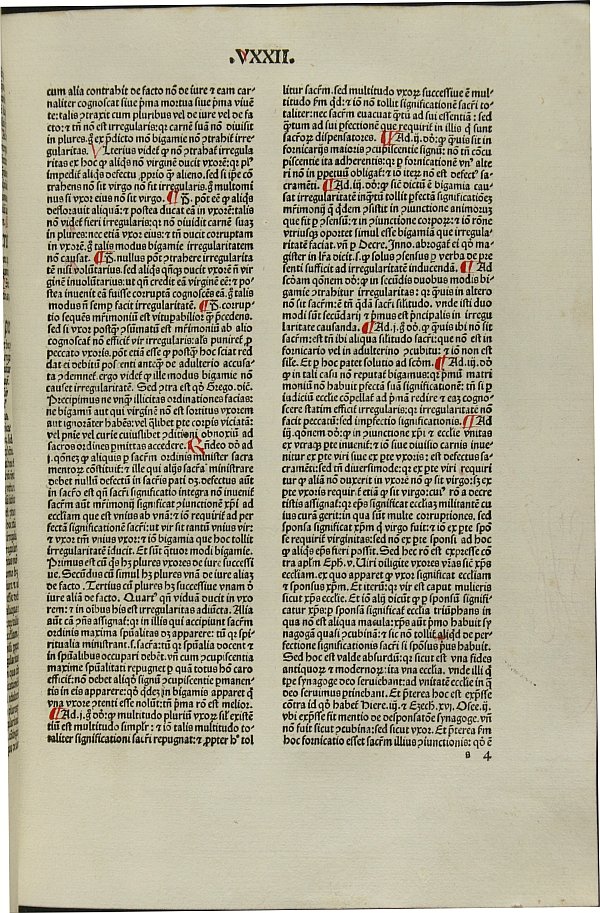 .VXXII.
cum alia contrahit de facto nō de iure ⁊ eam car-
naliter cognoscat siue p̄ma mortua siue p̄ma viuē
te: talis ꝯtraxit cum pluribus vel de iure vel de fa-
cto: ⁊ tn̄ nō est irregularis: qꝛ carnē suā nō diuisit
in plures. gͦ ex p̄dicto mō bigamie nō ꝯtrahit̄ irre-
gularitas. Vlterius videt̄ ꝙ nō ꝯtrahat̄ irregula
ritas ex hoc ꝙ aliq̇s nō virginē ducit vxorē: qꝛ
impedit̄ aliq̇s defectu ꝓprio q̄ȝ alieno. sed ipē cō
trahens nō sit virgo nō fit irregularis. gͦ multomi
nus si vxor eius nō sit virgo. ¶ P̄. pōt eē ꝙ aliq̇s
deflorauit aliquā: ⁊ postea ducat eā in vxorē: talis
nō videt̄ fieri irregularis: qꝛ nō diuidit carnē suaȝ
in plures: nec etiā vxor eius: ⁊ tn̄ ducit corruptam
in vxorē. gͦ talis modus bigamie irregularitatem
nō causat. ¶ P̄. nullus pōt ꝯtrahere irregularita
tē nisi volūtarius. sed aliq̇s qn̄qȝ ducit vxorē nō vir
ginē inuolūtarius: ut qn̄ credit eā virginē eē: ⁊ po-
stea inuenit eā fuisse corruptā cognoscēs eā. gͦ talis
modus nō semꝑ facit irregularitatē. ¶ P̄. corrup-
tio sequēs mr̄imoniū est vitupabilior q̄ȝ p̄cedens.
sed si vxor postq̄ȝ ꝯsūmatū est mr̄imoniū ab alio
cognoscat̄ nō efficit̄ vir irregularis: als puniret̄ ꝓ
peccato vxoris. pōt etiā esse ꝙ postq̄ȝ hoc sciat red
dat ei debitū poscenti anteq̄ȝ de adulterio accusa-
ta ꝯdemnet̄. ergo videt̄ ꝙ ille modus bigamie nō
causet irregularitatē. Sed ꝯtra est qͦ Grego. dic̄.
Precipimus ne vnq̄ȝ illicitas ordinationes facias:
ne bigamū aut qui virginē nō est sortitus vxorem
aut ignorātē habēs: vel q̄libet pte corpis viciatā:
vel pn̄ie vel curie cuiuslibet ꝯditioni obnoxiū ad
sacros ordines pmittas accedere. Rn̄deo dō ad
.i. qōneȝ ꝙ aliquis p sacr̄m ordinis minister sacra
mentoꝝ cōstituit̄: ⁊ ille qui alijs sacr̄a ministrare
debet nullū defectū in sacr̄is pati dȝ. defectus aūt
in sacr̄o est qn̄ sacr̄i significatio integra nō inuenit̄
sacr̄m aūt mr̄imonij significat ꝯiunctionē xp̄i ad
eccliam que est vnius ab vnā: ⁊ iō requirit̄ ad per
fectā significationē sacr̄i: ut vir sit tantū vnius vir:
⁊ vxor tm̄ vnius vxor: ⁊ iō bigamia que hoc tollit
irregularitatē iducit. Et sūt qͣtuor modi bigamie.
Primus est cū q̇s hȝ plures vxores de iure successi
ue. Secūdus cū simul hȝ plures vnā de iure aliaȝ
de facto. Tertius cū plures hȝ successiue vnam d
iure aliā de facto. Quart̄ qn̄ viduā ducit in vxo
rem: ⁊ in oībus his est irregularitas adiūcta. Alia
aūt cā ꝯn̄s assignat̄: qꝛ in illis qui accipiunt sacr̄m
ordinis maxima spūalitas dȝ apparere: tū qꝛ spi-
ritualia ministrant. s. sacr̄a: tū qꝛ spūalia docent ⁊
in spūalibus occupari debēt. vn̄ cum ꝯcupiscentia
maxime spūalitati repugnet p quā totus hō caro
efficit̄: nō debet aliqd̄ signū ꝯcupiscentie pmanen-
tis in eis apparere: qd̄ qdeȝ in bigamis apparet q̇
vna vxore ꝯtenti esse nolūt: tn̄ p̄ma rō est melior.
¶ Ad .i. gͦ dō: ꝙ multitudo pluriū vxoꝝ sil̄ existē
tiū est multitudo simplr̄: ⁊ iō talis multitudo to-
taliter significationi sacr̄i repugnat: ⁊ ꝓpter hͦ tol
litur sacr̄m. sed multitudo vxoꝝ successiue ē mul-
titudo fm̄ qd̄: ⁊ iō nō tollit significationē sacr̄i to-
taliter: nec sacr̄m euacuat q̄tū ad sui essentiā: sed
q̄tum ad sui pfectionē que requirit̄ in illis q̇ sunt
sacroꝝ dispensatores. ¶ Ad .ij. dō: ꝙ q̄uis sit in
fornicarijs maioris ꝯcupiscentie signū: nō tn̄ cōcu
piscentie ita adherentis: qꝛ p fornicationē vn̄ alte
ri nō in ppetuū obligat̄: ⁊ iō iteꝝ nō est defect̄ sa-
cramēti. ¶ Ad .iij. dō: ꝙ sic dictū ē bigamia cau-
sat irregularitatē inq̄tū tollit pfectā significationeȝ
mr̄imonij qͥ qdem ꝯsistit in ꝯiunctione animoruȝ
que fit p ꝯsensū: ⁊ in ꝯiunctione corpoꝝ: ⁊ iō rōne
vtriusqȝ oportet simul esse bigamiā que irregula-
ritatē faciat. vn̄ p Decre. Inno. abrogat̄ ei qͦ ma-
gister in lr̄a dicit. s. ꝙ solus ꝯsensus p verba de pre
senti sufficit ad irregularitatē inducendā. ¶ Ad
scdam qōnem dō: ꝙ in secūdis duobus modis bi-
gamie ꝯtrahit̄ irregularitas: qꝛ q̄uis in altero
nō sit sacr̄m: ē tn̄ q̄dā sacr̄i silitudo. vnde isti duo
modi sūt secūdarij ⁊ p̄mus est pncipalis in irregu
laritate causanda. ¶ Ad .i. gͦ dō: ꝙ q̄uis ibi nō sit
sacr̄m: est tn̄ ibi aliqua silitudo sacr̄i: que nō est in
fornicario vel in adulterino ꝯcubitu: ⁊ iō non est
sile. Et p hoc patet solutio ad scd̄m. ¶ Ad .iij. dō
ꝙ in tali casu nō reputat̄ bigamus: qꝛ p̄mū matri
moniū nō habuit pfectā suā significationē: tn̄ si p
iudiciū ecclie cōpellat̄ ad p̄mā redire ⁊ eaȝ cogno-
scere statim efficit̄ irregularis: qꝛ irregularitatē nō
facit peccatū: sed impfectio significationis. ¶ Ad
.iij. qōnem dō: ꝙ in ꝯiunctione xp̄i ⁊ ecclie vnitas
ex vtraqȝ pte inuenit̄: ⁊ iō siue diuisio carnis inue-
nitur ex pte viri siue ex pte vxoris: est defectus sa-
cramēti: sed tn̄ diuersimode: qꝛ ex pte viri requiri
tur ꝙ aliā nō duxerit in vxorē nō ꝙ sit virgo: sꝫ ex
pte vxoris requirit̄ etiā ꝙ sit virgo: cui̇ rō a decre
tistis assignat̄: qꝛ ep̄s significat eccliaȝ militantē cu
ius curā gerit: in qua sūt multe corruptiones. sed
sponsa significat xp̄m q̇ virgo fuit: ⁊ iō ex pte spō
se requirit̄ virginitas: sed nō ex pte sponsi ad hoc
ꝙ aliq̇s ep̄s fieri possit. Sed hec rō est expresse cō
tra aplm̄ Eph̄. v. Uiri diligite vxores vr̄as sic̄ xp̄s
eccliam. ex quo apparet ꝙ vxor significat eccliam
⁊ sponsus xp̄m. Et iterū: qꝛ vir est caput mulieris
sicut xp̄s ecclie. Et iō alij dicūt ꝙ p sponsū signifi-
catur xp̄s: p sponsā significat̄ ecclia triūphans in
qua nō est aliqua macula: xp̄s aūt p̄mo habuit sy
nagogā quasi ꝯcubinā: ⁊ sic nō tollit̄ aliqd̄ de per-
fectione significationis sacr̄i si spōsus pus habuit.
Sed hoc est valde absurdū: qꝛ sicut est vna fides
antiquoꝝ ⁊ modernoꝝ: ita vna ecclia. vnde illi q̇
tpe synagoge deo seruiebant: ad vnitatē ecclie in q̄
deo seruimus ptinebant. Et pterea hoc est exp̄sse
contra id qͦ habet̄ Hiere. iij. ⁊ Ezech. xvi. Osee. ij.
vbi exp̄sse fit mentio de desponsatōe synagoge. vn̄
nō fuit sicut ꝯcubina: sed sicut vxor. Et pterea fm̄
hoc fornicatio esset sacr̄m illius ꝯiunctionis: qͦ ē
s 4